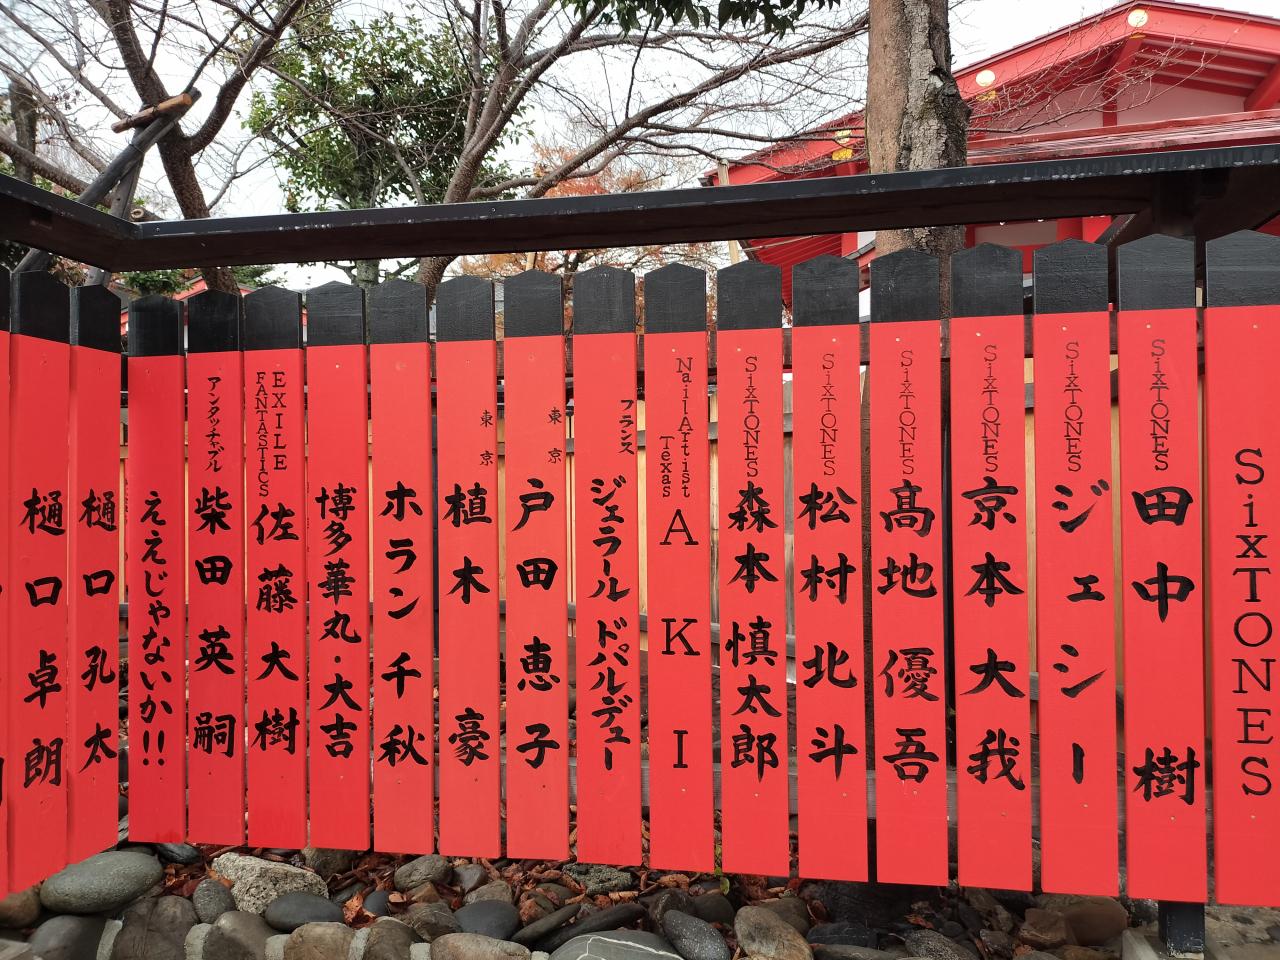 SixTONES
SixTONES 田中 樹
SixTONES ジェシー
SixTONES 京本大我
SixTONES 髙地優吾
SixTONES 松村北斗
SixTONES 森本慎太郎
NailArtist
Texas
AKI
フランス ジェラール ドパルデュー
東京 戸田恵子
東京 植木 豪
ホラン千秋
博多華丸・大吉
EXILE
FANTASTICS
佐藤大樹
アンタッチャブル 柴田英嗣
ええじゃないか!!
樋口孔太
樋口卓朗